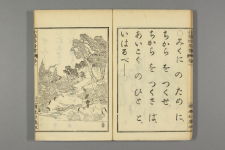 みくに の ために、
ちから を つくせ、
ちから を つくさば、
あいこく の ひと と、
いはるべし